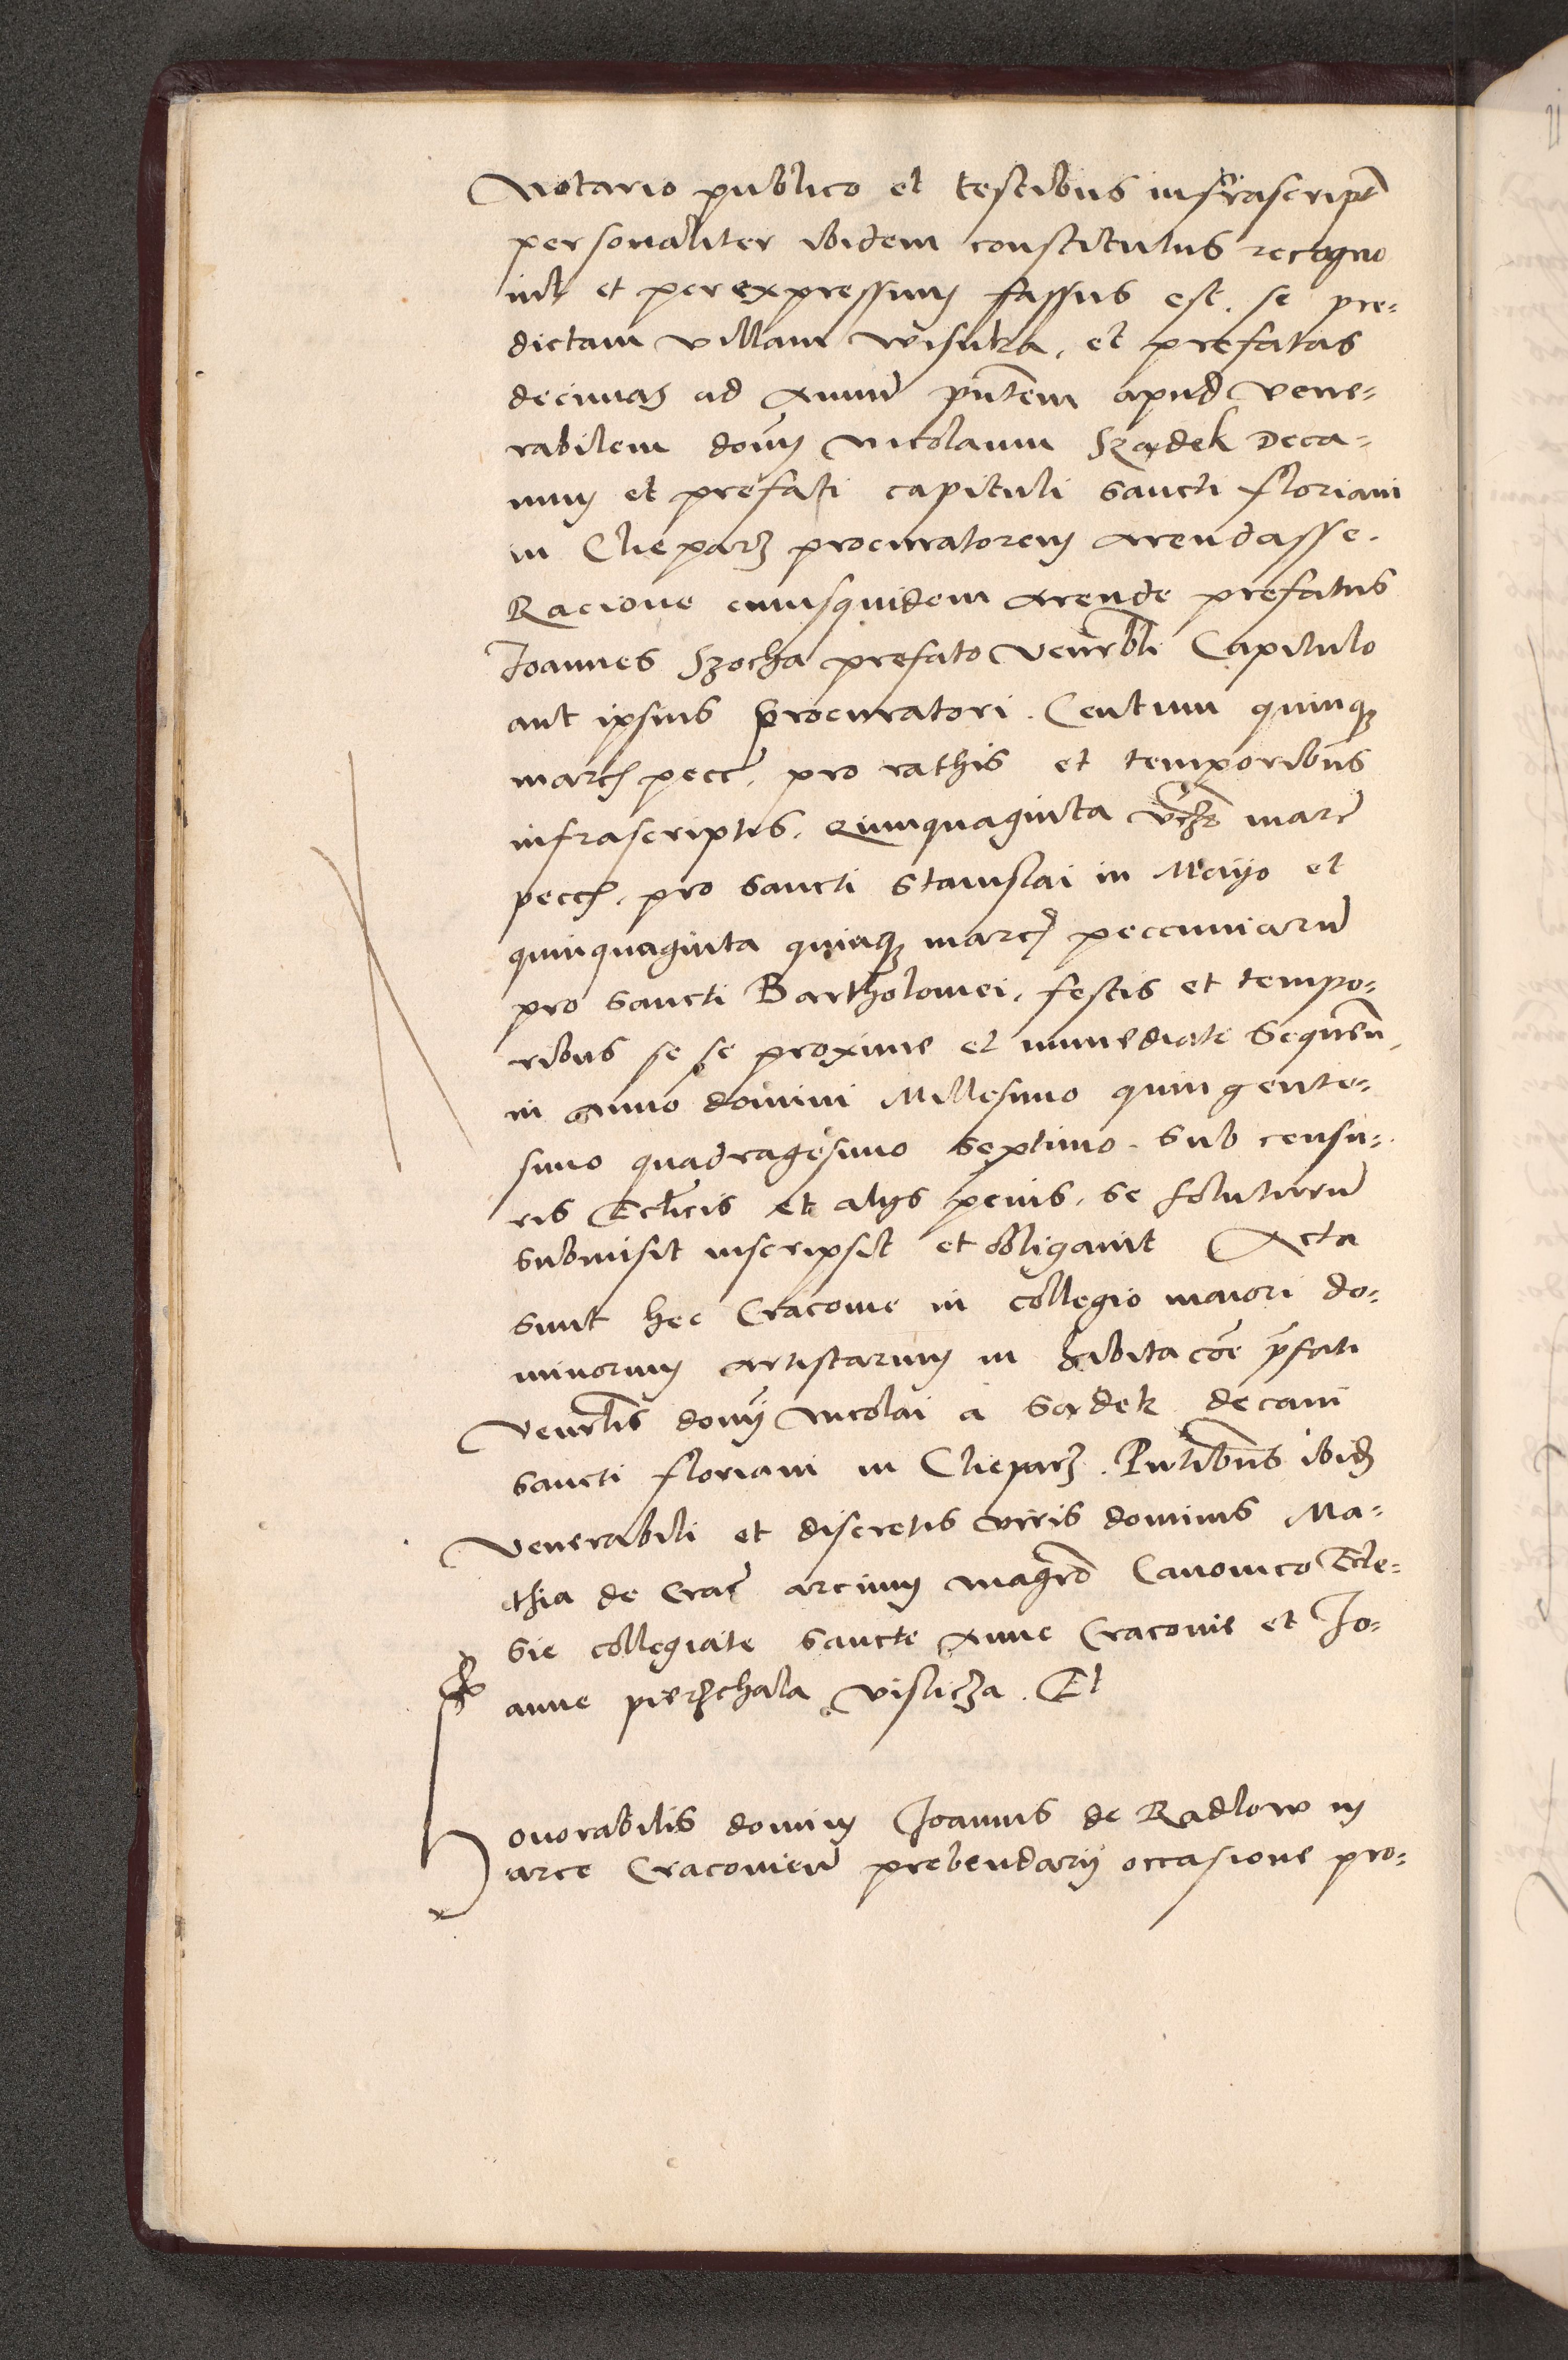 Notario publico et testibus infrascript
personaliter ibidem constitutus recogno
uit et per expressum fassus est. se pre=
dictam villam wisutza, et prefatas
decimas ad Annu pntem apud vene=
rabilem domi nicolaum Szadek Deca=
num et prefati capituli sancti floriani
in Clieparz procuratorem arendasse.
Racione cuiusquidem arende prefatus
Joannes Szocha prefato venerbli Capitulo
aut ipsius procuratori. Centum quinq
marc pecc, pro rathis et temporibus
infrascriptis, quinquaginta marc
pecc, pro sancti Stanislai in Mayo et
quinquaginta quinq marc pecuniaru
pro sancti Bartholomei, festis et tempo=
ribus se se proxime et immediate sequen,
in anno domini Millesimo quingente=
simo quadragesimo septimo. sub censu=
ris Ecclicis et alys penis, se soluturu
submisit inscripsit et obligauit Acta
sunt hec Cracouie in collegio maiori do=
minorum artistarum in habitacoe pfati
venerlis domij nicolai a Sadek decani
sancti floriani in Clieparz. Pntibus ibid
venerabili et discretis viris dominis Ma=
thia de Crac arcium magro Canonico Eccle=
sie collegiate sancte Anne Cracouie et Jo=
anne pierzchala vislicza. Et
Honorabilis domini Joannis de Radlow in
arce Cracouien prebendarij occasione pro=